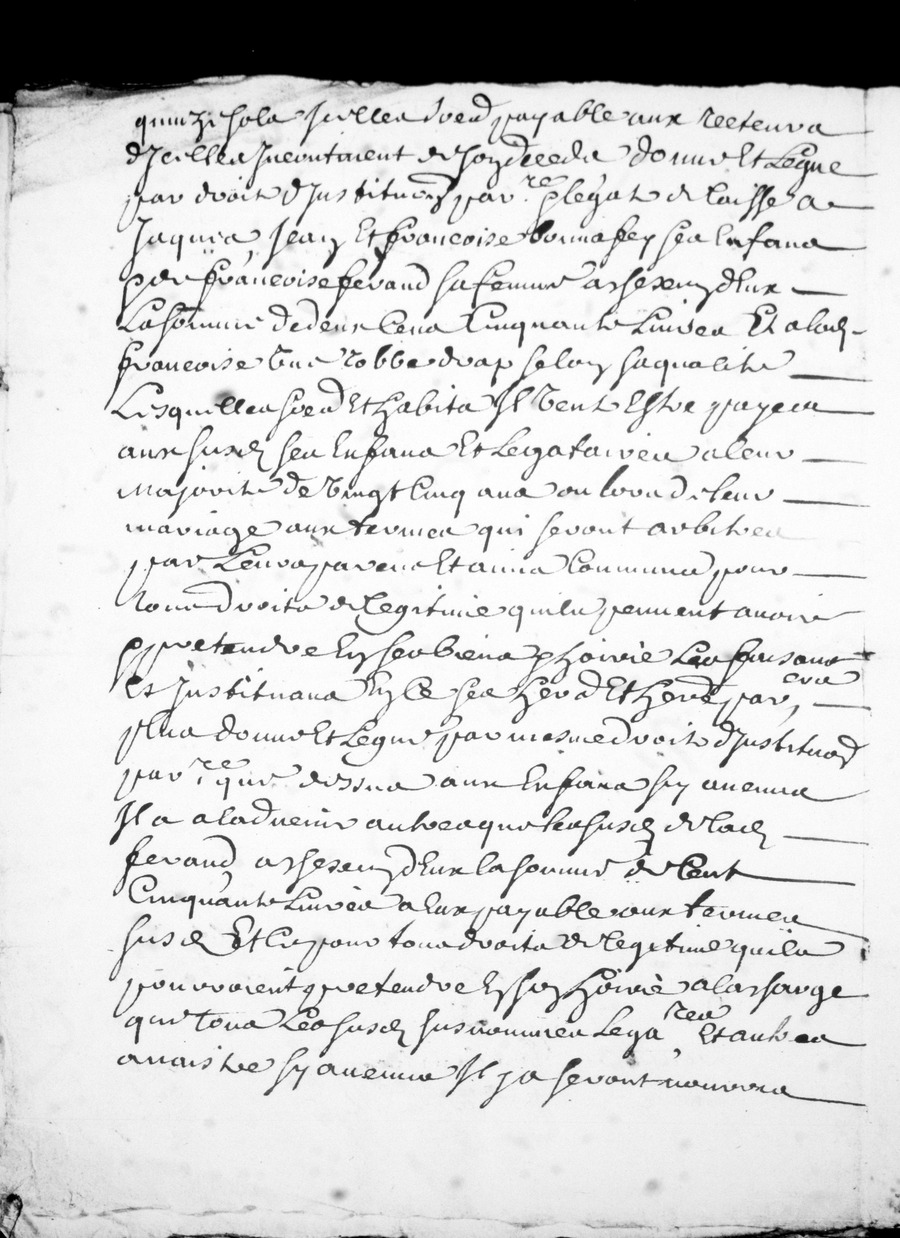 quinze sols Icelles soen payable aux recteurs
d'Icelles Incontinent et son deceds donne Et Legue
par droit d'Institu͠on par re p̲ légat et laisse a
Jaques, Jean Et francoise bonnafey ses Enfans
p et francoise ferand sa femme a chescun d'Eux
La somme de deux Cens Cinquante Livres Et a lad
francoise Une Robbe drap selon sa qualite
Lesquelles soes Et habits Il veut Estre payees
aux susd ses Enfans Et Legataires a leur
majorite de vingt Cinq ans ou lors de leur
mariage aux termes qui seront arbitres
par Leurs parens Et amis Communs pour
tous droits de legitime quils peuvent avoir
p pretendre En ses biens p hoirie Les faisans
Et Instituans En Ce ses her Et here par,
ers
plus donne Et Legue par mesme droit d'Institu͠on
par re que dessus aux Enfans sy aucuns
Il a a ladvenir autres que les susd de lad
ferand a chescun d'Eux la somme de Cent
Cinquante Livres a Eux payable aux termes
susd Et Ce pour tous droits de legitime quils
pourroient pretendre En son hoirie a la charge
que tous Les susd susnommes Lega res Et autres
a naistre sy aucuns Il y a seront nourris